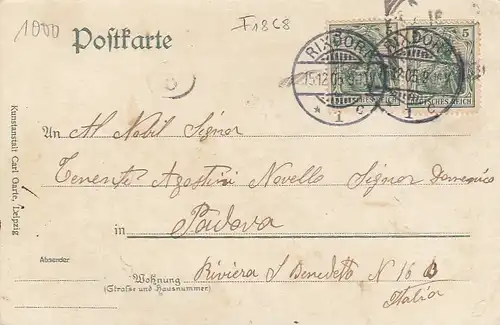 1000
F1868
Postkarte
5
RIXDORF
RIXDORF
15.12.05
1 c
1 c
DEUTSCHES REICH
Kunstanstalt Carl Garte, Leipzig
An Al Nobil Signor
Tenente Agostini Novello Signor Domenico
in Padova
Absender
Wohnung
(Straße und Hausnummer)
Riviera S Benedetto N 16
Italia